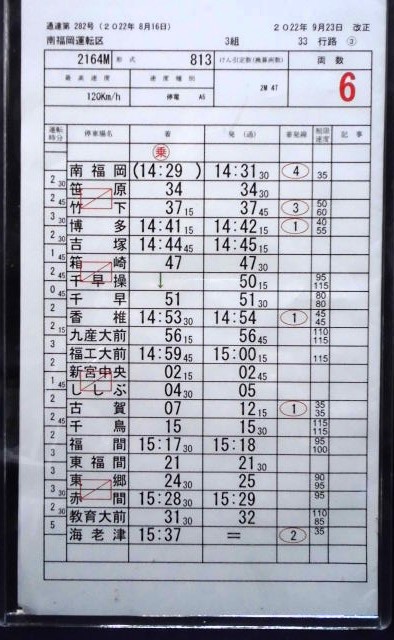 通達第 282号(2022年 8月16日) 2022年 9月23日 改正
南福岡運転区 3組 33 行路 ③
2164M 形式 813 けん引定数(換算両数) 両数
最高速度 速度種別 2M 4T 6
120Km/h 停電 A5
運転時分 停車場名 着 発(通) 着発線 制限速度 記事
乗
南福岡 (14:29 ) 14:31 30 4 35
2 30
笹原 34 34 30
2 45
竹下 37 15 37 45 3 50 60
3 30
博多 14:41 15 14:42 15 1 40 55
2 30
吉塚 14:44 45 14:45 15
1 45
箱崎 47 47 30
2 45
千早操 ↓ 50 15 95 115
0 45
千早 51 51 30 80 80
2
香椎 14:53 30 14:54 1 45 45
2 15
九産大前 56 15 56 45 110 115
3
福工大前 14:59 45 15:00 15 115
2
新宮中央 02 15 02 45
1 45
ししぶ 04 30 05
2
古賀 07 12 15 1 35 35
2 45
千鳥 15 15 30 115 115
2
福間 15:17 30 15:18 95 100
3
東福間 21 21 30
3
東郷 24 30 25 90 95
3 30
赤間 15:28 30 15:29 95
2 30
教育大前 31 30 32 110 85
5
海老津 15:37 = 2 35